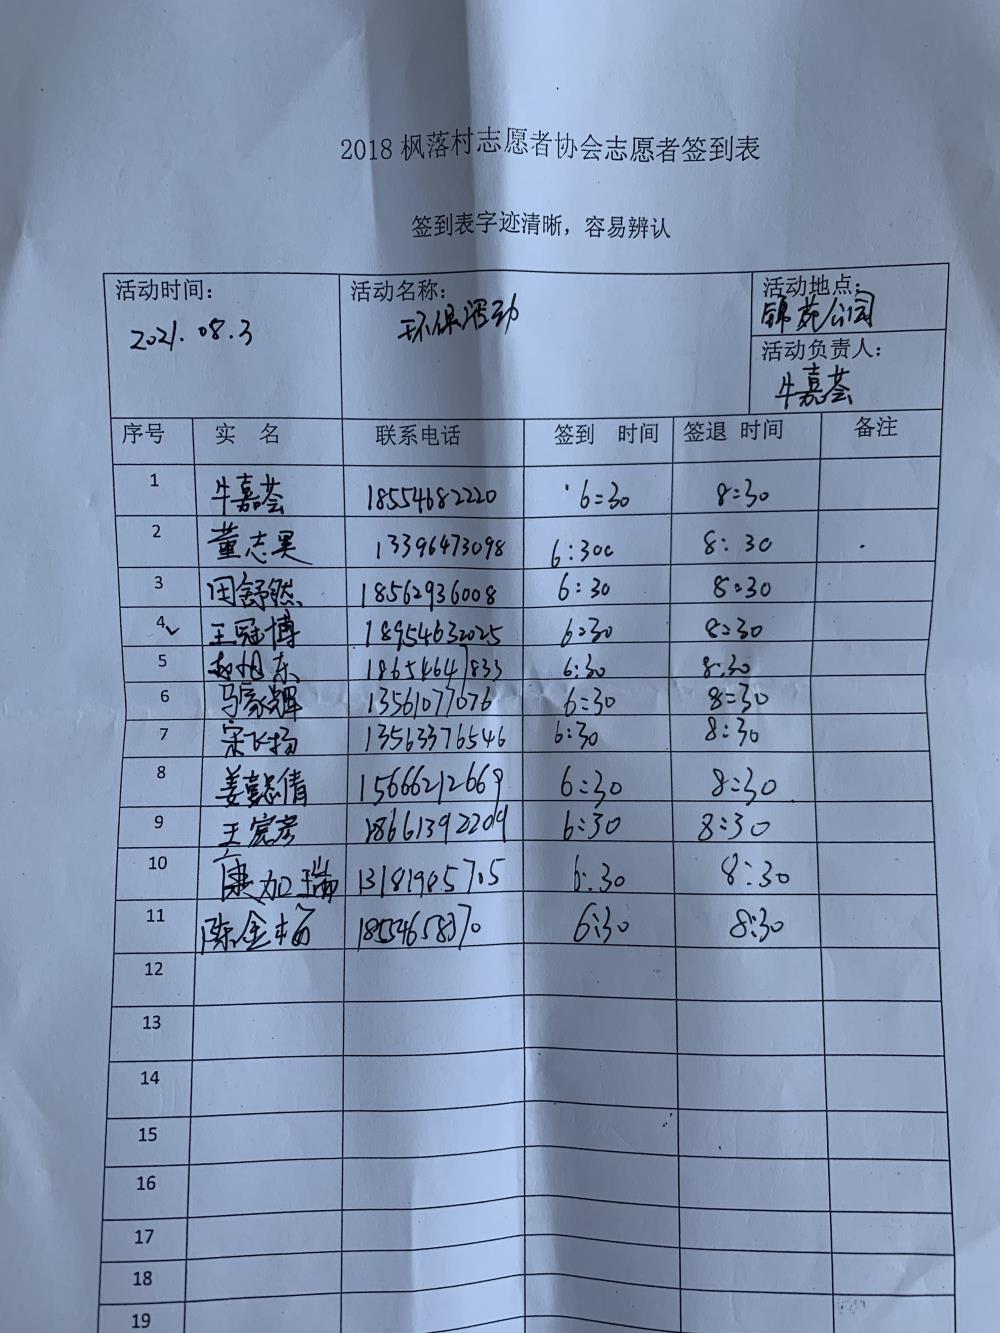 2018 枫落村志愿者协会志愿者签到表
签到表字迹清晰，容易辨认
活动时间： 活动名称： 活动地点：
2021.08.3 环保活动 锦苑公园
活动负责人：
牛嘉荟
序号 实 名 联系电话 签到 时间 签退 时间 备注
1 牛嘉荟 18554682220 6:30 8:30
2 董志昊 13396473098 6:300 8:30
3 田舒然 18562936008 6:30 8:30
4 王冠博 18954632025 6:30 8:30
5 赵旭东 18654647833 6:30 8:30
6 马家辉 13561077676 6:30 8:30
7 宋飞扬 13563376546 6:30 8:30
8 姜懿倩 15666212669 6:30 8:30
9 王宸彦 6:30 8:30
10 康加瑞 6:30 8:30
11 陈金梅 18554658370 6:30 8:30
12
13
14
15
16
17
18
19